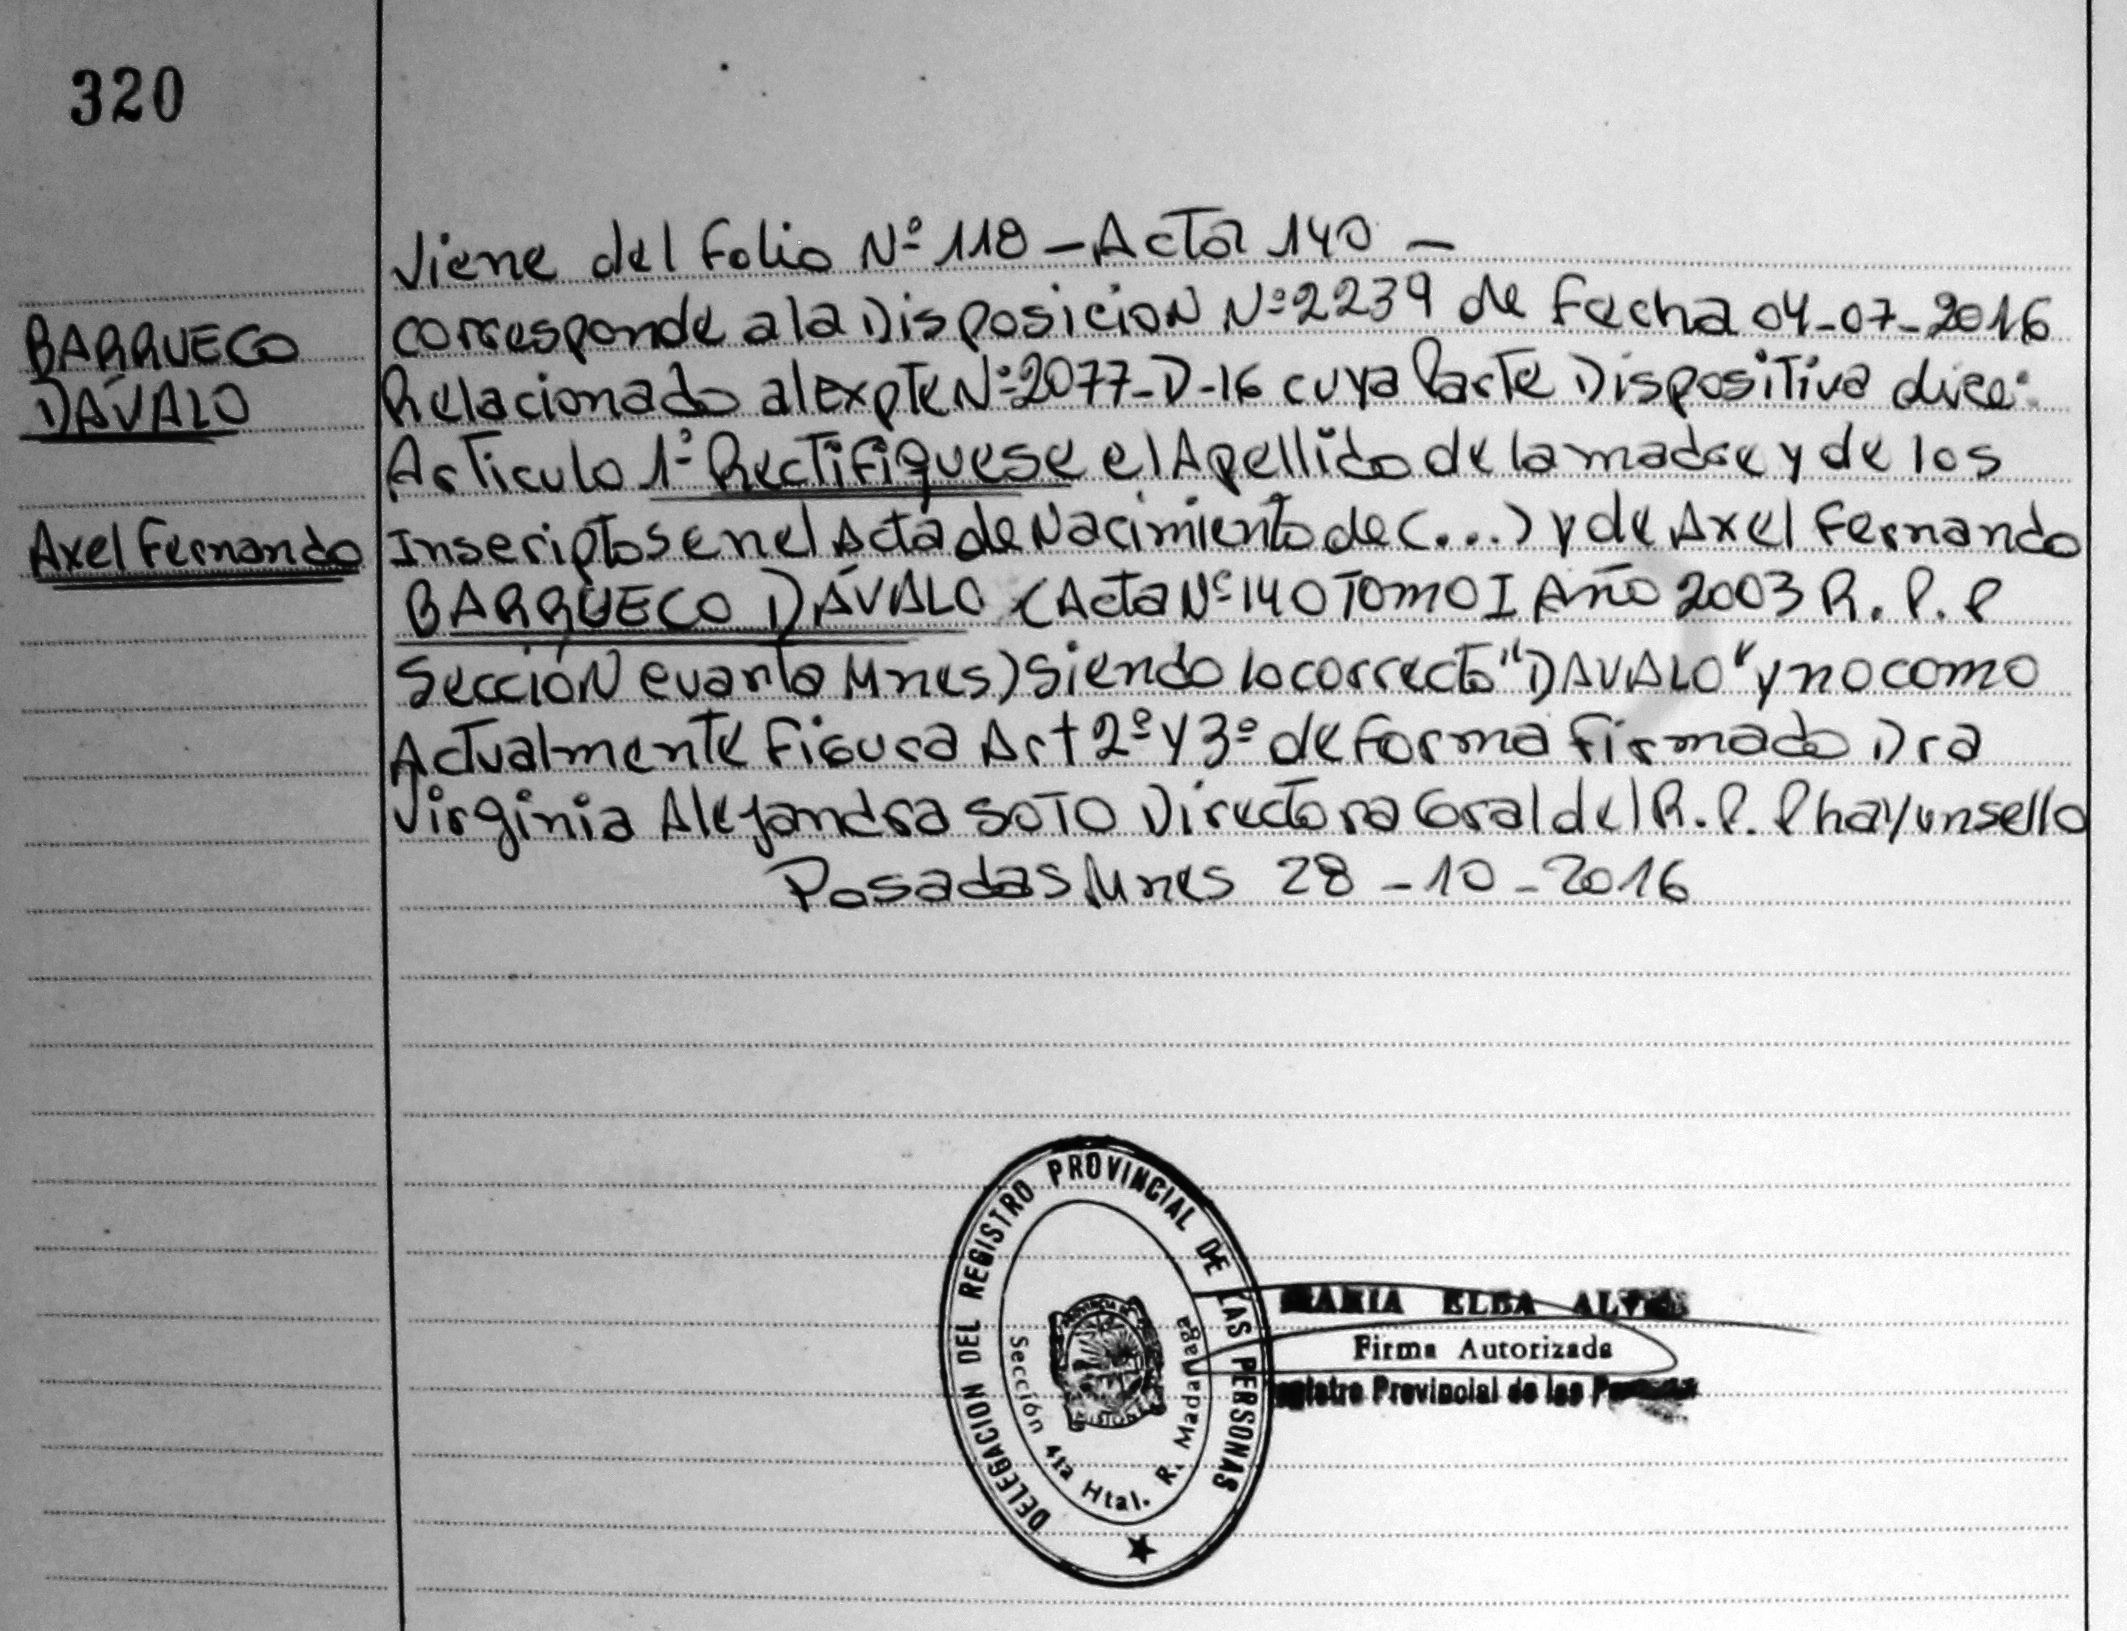 320
BARRUECO
DÁVALO
Axel Fernando
Viene del Folio Nº 118 – Acta 140 –
corresponde a la Disposicion Nº 2239 de Fecha 04-07-2016
Relacionado al expte Nº 2077-D-16 cuya Parte Dispositiva dice:
Articulo 1º Rectifiquese el Apellido de la madre y de los
Inscriptos en el Acta de Nacimiento de (...) y de Axel Fernando
BARRUECO DÁVALO (Acta Nº 140 Tomo I Año 2003 R. P. P
Sección cuarta Mnes) Siendo lo correcto "DAVALO" y no como
Actualmente Figura Art 2º y 3º de Forma Firmado Dra
Virginia Alejandra SOTO Directora Gral del R. P. P hay un sello
Posadas Mnes 28 - 10 - 2016
DELEGACION DEL REGISTRO PROVINCIAL DE LAS PERSONAS
Sección 4ta Htal. R. Madariaga
MARIA ELBA
Firma Autorizada
Registro Provincial de las